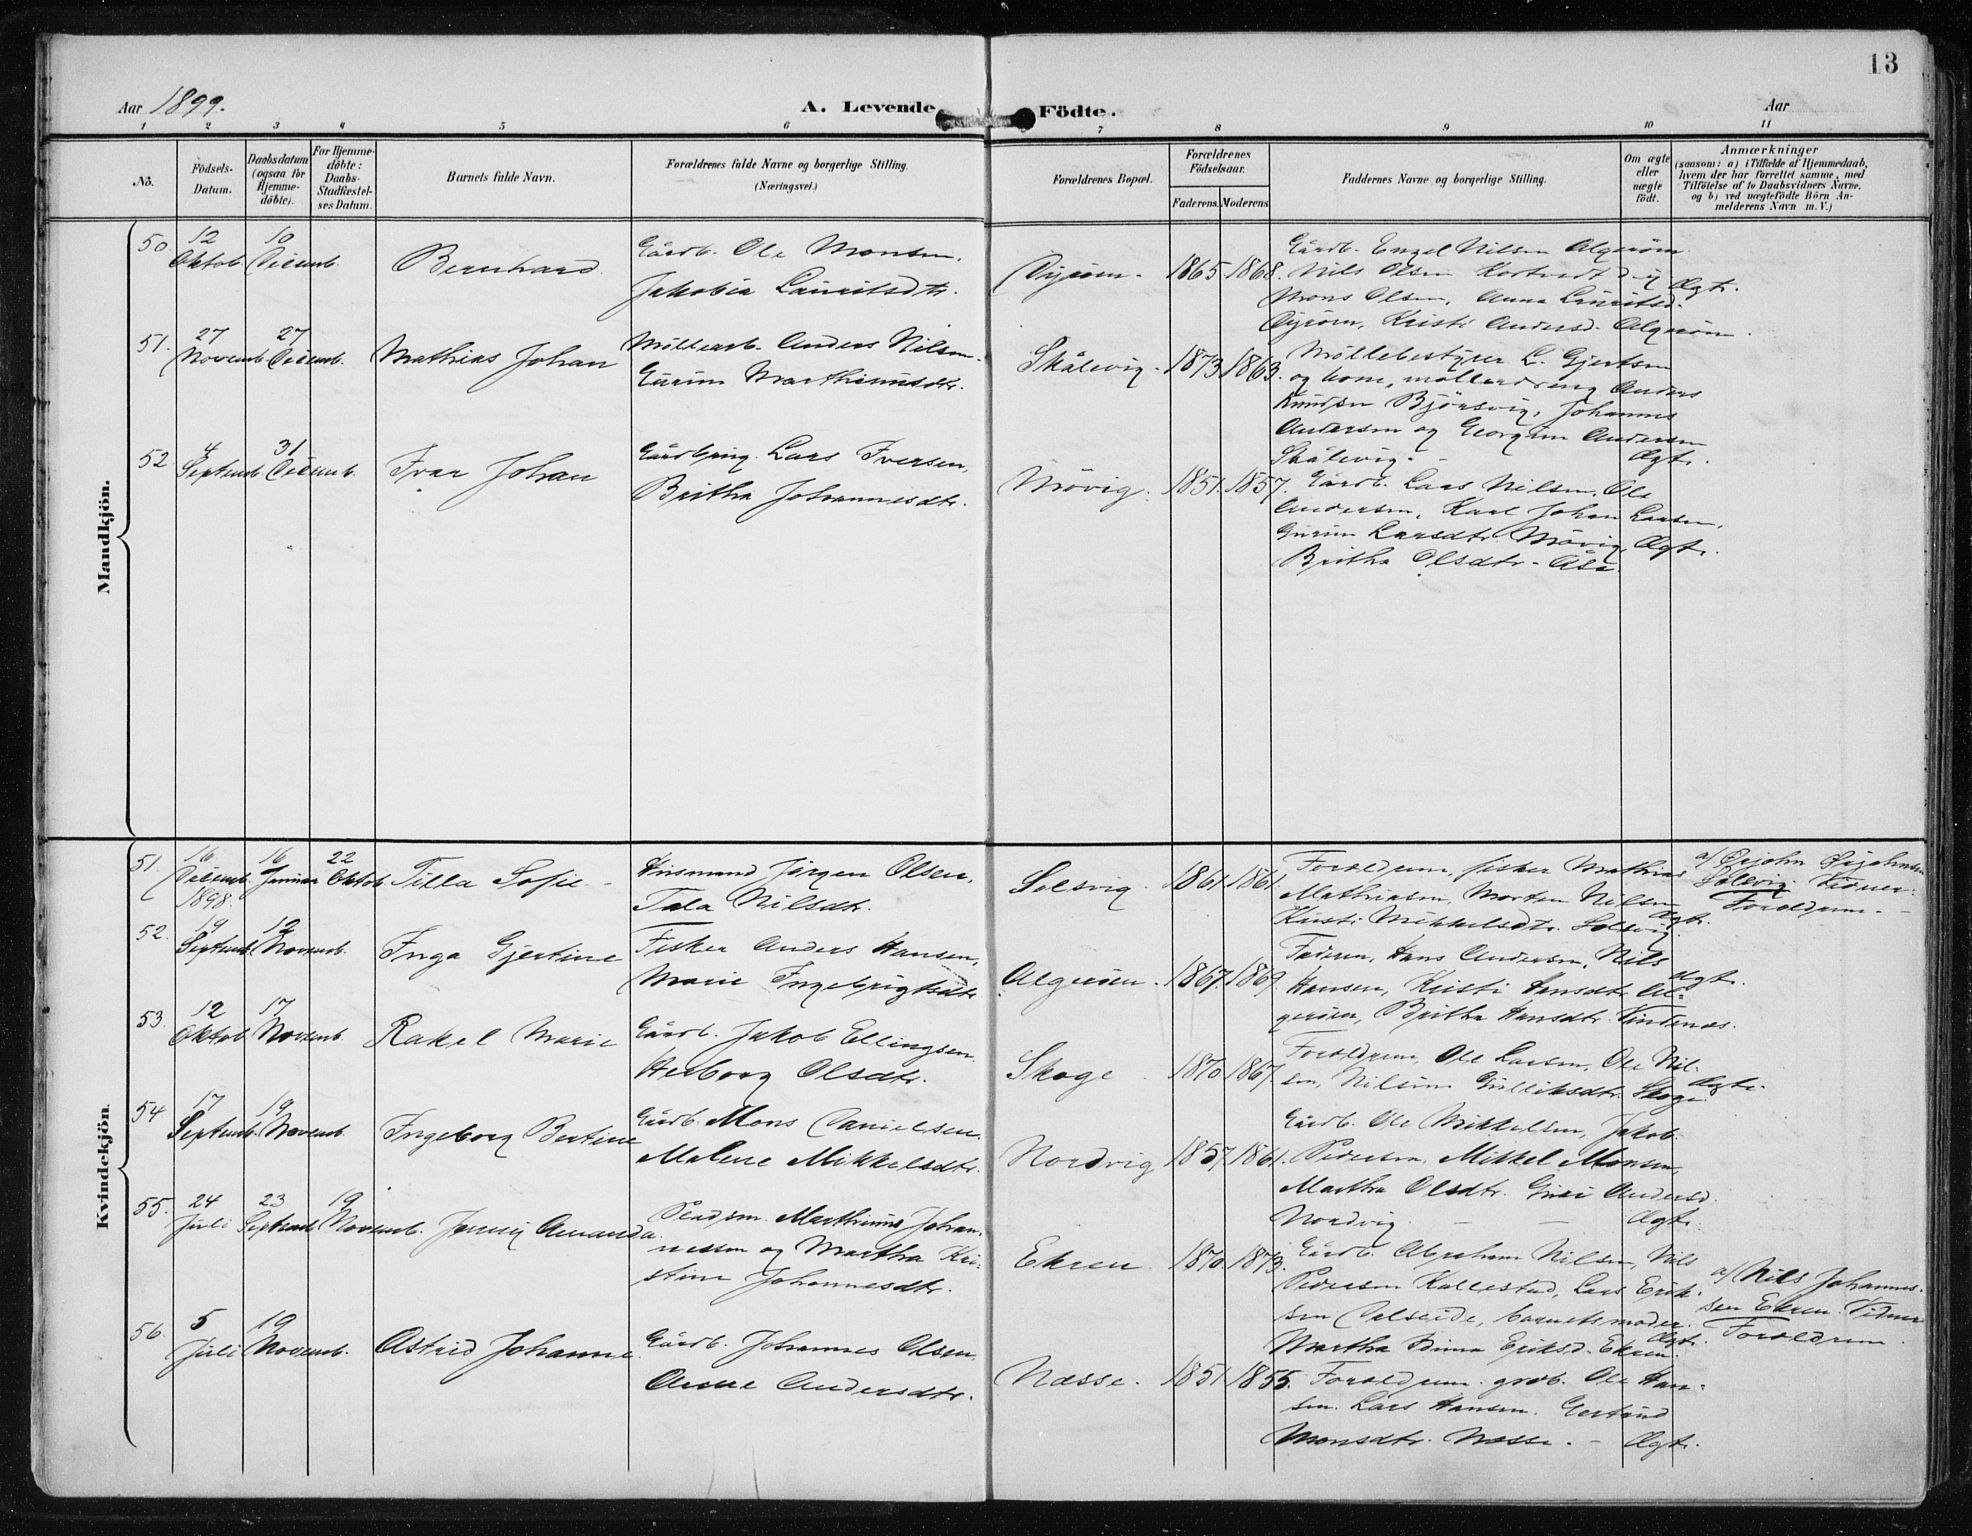 13
Aar 1899.
A. Levende Födte.
Aar
1 2 3 4 5 6 7 8 9 10 11
No.
Födsels-Datum.
Daabsdatum (ogsaa for Hjemme-döbte).
For Hjemme-döbte: Daabs-Stadfæstel-ses Datum.
Barnets fulde Navn.
Forældrenes fulde Navne og borgerlige Stilling.
(Næringsvei.)
Forældrenes Bopæl.
Forældrenes Födselsaar.
Faderens. Moderens.
Faddernes Navne og borgerlige Stilling.
Om ægte eller uægte födt.
Anmærkninger
(saasom: a) i Tilfælde af Hjemmedaab,
hvem der har forrettet samme, med
Tilföielse af to Daabsvidners Navne,
og b) ved uægtefödte Börn An-
melderens Navn m. V.)
Mandkjön.
50. 12 Oktob. 10 Desemb. Bernhard
Gårdb. Ole Monsen,
Jakobia Lauritsdtr.
1865. 1868.
Gårdb. Engel Nilsen Algeröen
Nils Olsen
Mons Olsen, Anna Lauritsd.
Kristi Andersd. Algeröen.
Ægte.
51. 27 Novemb. 27 Desemb. Mathias Johan
Möllearb. Anders Nilsen
Gurine Marthinusdtr.
Skålevig. 1873. 1863.
Möllebestyrer L. Gjertsen
og kone, mölledreng Anders
Knudsen Björsvig, Johannes
Andersen og Georgine Andersen
Skålevig. -
Ægte.
52 4 Septemb. 31 Desemb. Ivar Johan
Lars Iversen,
Britha Johannesdtr.
Mövig. 1851. 1857.
Gårdb. Lars Nilsen, Ole
Andersen, Karl Johan Larsen,
Gurine Larsdtr. Mövig, Ægte.
Britha Olsdtr.
Kvindekjön.
51. 16 Desemb. 1898. 16 Januar 22 Oktob. Tilla Sofie -
Husmand Jörgen Olsen,
Tala Nilsdtr.
Solsvig. 1861. 1861.
Forældrene, fisker Mathias
Mathiasen, Morten Nilsen
Kirsti Mikkelsdtr. Solsvig.
Ægte.
a/
Solsvig. Vidner:
Forældrene. -
52. 19 Septemb. 12 Novemb. Inga Gjertine
Fisker Anders Hansen,
Marie Ingebrigtsdtr
Algeröen. 1867. 1869.
Faderen, Hans Andersen, Nils
Hansen, Kristi Hansdtr. Al-
geröen, Britha Hansdtr. Vindenæs.
Ægte.
53. 12 Oktob. 17 Novemb. Rakel Marie
Gårdb. Jakob Ellingsen,
Herborg Olsdtr.
Skoge 1870. 1867.
Forældrene, Ole Larsen, Ole Nil-
sen, Nilsine Gulliksdtr. Skoge.
Ægte.
54 17 Septemb. 19 Novemb. Ingeborg Bertine
Gårdb. Mons Danielsen.
Malene Mikkelsdtr.
Nordvig 1857. 1861.
Gårdb. Ole Mikkelsen, Jakob
Pedersen, Mikkel Monsen,
Martha Olsdtr. Guri Andersd.
Nordvig. - -
Ægte.
55. 24 Juli 23 Septemb. 19 Novemb. Jenny Amanda
Marthinus Johan-
nessen og Martha Kri-
stine Johannesdtr.
Ekren. 1870. 1873.
Gårdb. Abraham Nilsen, Nils
Pedersen Kallestad, Lars Erik-
sen Dalseide, barnets moder.
Martha Eriksd. Ekren.
Ægte.
a/ Nils Johannes-
sen Ekren. Vidner
Forældrene.
56. 5 Juli 19 Novemb. Astrid Johanne
Gårdb. Johannes Olsen,
Anne Andersdtr.
Næsse. 1851 1855.
Forældrene. grdb. Ole Han-
sen. Lars Hansen. Gertrud
Monsdtr. Næsse. - Ægte.